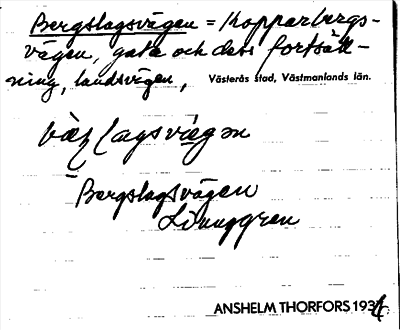 Bergslagsvägen = Kopparbergs-
vägen, gata och dess fortsätt-
ning, landsvägen, Västerås stad, Västmanlands län.
lagsvägen
Bergslagsvägen
Linnggren
ANSHELM THORFORS 1934